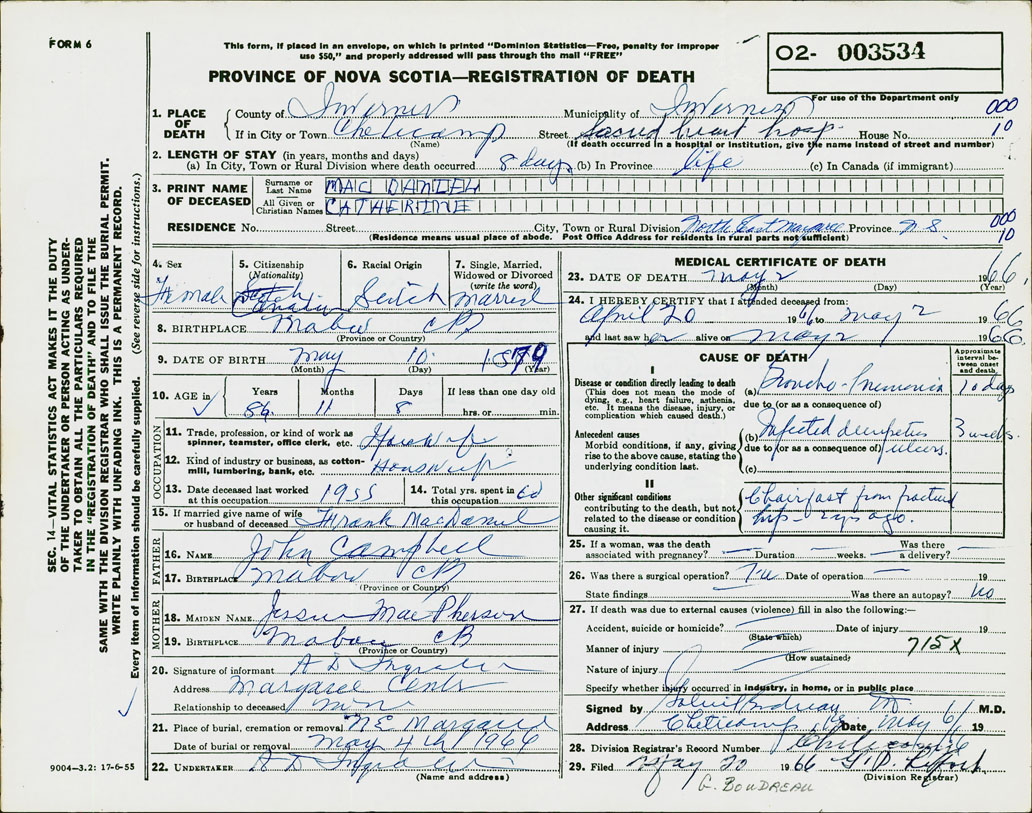 FORM 6
This form, if placed in an envelope, on which is printed "Dominion Statistics—Free, penalty for improper
use $50," and properly addressed will pass through the mail "FREE"
PROVINCE OF NOVA SCOTIA—REGISTRATION OF DEATH
02- 003534
For use of the Department only
SEC. 14—VITAL STATISTICS ACT MAKES IT THE DUTY
OF THE UNDERTAKER OR PERSON ACTING AS UNDER-
TAKER TO OBTAIN ALL THE PARTICULARS REQUIRED
IN THE "REGISTRATION OF DEATH" AND TO FILE THE
SAME WITH THE DIVISION REGISTRAR WHO SHALL ISSUE THE BURIAL PERMIT.
WRITE PLAINLY WITH UNFADING INK. THIS IS A PERMANENT RECORD.
Every item of information should be carefully supplied. (See reverse side for instructions.)
1. PLACE OF DEATH
County of Inverness Municipality of Inverness 000
If in City or Town Cheticamp Street Sacred heart hosp. House No. 10
(Name) (If death occurred in a hospital or institution, give the name instead of street and number)
2. LENGTH OF STAY (in years, months and days)
(a) In City, Town or Rural Division where death occurred 8 days (b) In Province life (c) In Canada (if immigrant)
3. PRINT NAME OF DECEASED
Surname or Last Name MAC DANIEL
All Given or Christian Names CATHERINE
000
RESIDENCE No. Street City, Town or Rural Division North East Margaree Province N S. 10
(Residence means usual place of abode. Post Office Address for residents in rural parts not sufficient)
4. Sex
Female
5. Citizenship (Nationality)
Scotch
Canadian
6. Racial Origin
Scitch
7. Single, Married, Widowed or Divorced (write the word)
Married
8. BIRTHPLACE Mabou CB
(Province or Country)
9. DATE OF BIRTH May 10 1879
(Month) (Day) (Year)
10. AGE in Years Months Days If less than one day
86 11 8 hrs. or min.
OCCUPATION
11. Trade, profession, or kind of work as spinner, teamster, office clerk, etc. Housewife
12. Kind of industry or business, as cotton-mill, lumbering, bank, etc. Housewife
13. Date deceased last worked at this occupation 1955
14. Total yrs. spent in this occupation 60
15. If married give name of wife or husband of deceased Frank MacDaniel
FATHER
16. NAME John Campbell
17. BIRTHPLACE Mabou CB
(Province or Country)
MOTHER
18. MAIDEN NAME Jessie MacPherson
19. BIRTHPLACE Mabou CB
(Province or Country)
20. Signature of informant A D Ingraham
Address Margaree Centre
Relationship to deceased
21. Place of burial, cremation or removal N.E. Margaree
Date of burial or removal May 4th 1966
22. UNDERTAKER A D Ingraham
(Name and address)
9004—3.2: 17-6-55
MEDICAL CERTIFICATE OF DEATH
23. DATE OF DEATH May 2 1966
(Month) (Day) (Year)
24. I HEREBY CERTIFY that I attended deceased from:
April 20 1966 to May 2 1966
and last saw her alive on May 2 1966
CAUSE OF DEATH
Approximate interval between onset and death
I
Disease or condition directly leading to death
(This does not mean the mode of dying, e.g., heart failure, asthenia, etc. It means the disease, injury, or complication which caused death.)
(a) Broncho-Pneumonia 10 days
due to (or as a consequence of)
Antecedent causes
Morbid conditions, if any, giving rise to the above cause, stating the underlying condition last.
(b) Infected decubitus 3 weeks.
due to (or as a consequence of) ulcers.
(c)
II
Other significant conditions
contributing to the death, but not related to the disease or condition causing it.
Chairfast from fracture
hip— yrs ago.
25. If a woman, was the death associated with pregnancy? Duration weeks. Was there a delivery?
26. Was there a surgical operation? Date of operation 19
State findings Was there an autopsy? No
27. If death was due to external causes (violence) fill in also the following:—
Accident, suicide or homicide? Date of injury 19
(State which)
Manner of injury 715X
(How sustained)
Nature of injury
Specify whether injury occurred in industry, in home, or in public place
Signed by M.D.
Address Cheticamp Date May 6/ 19
28. Division Registrar's Record Number
29. Filed May 20 1966
(Division Registrar)
G. BOUDREAU